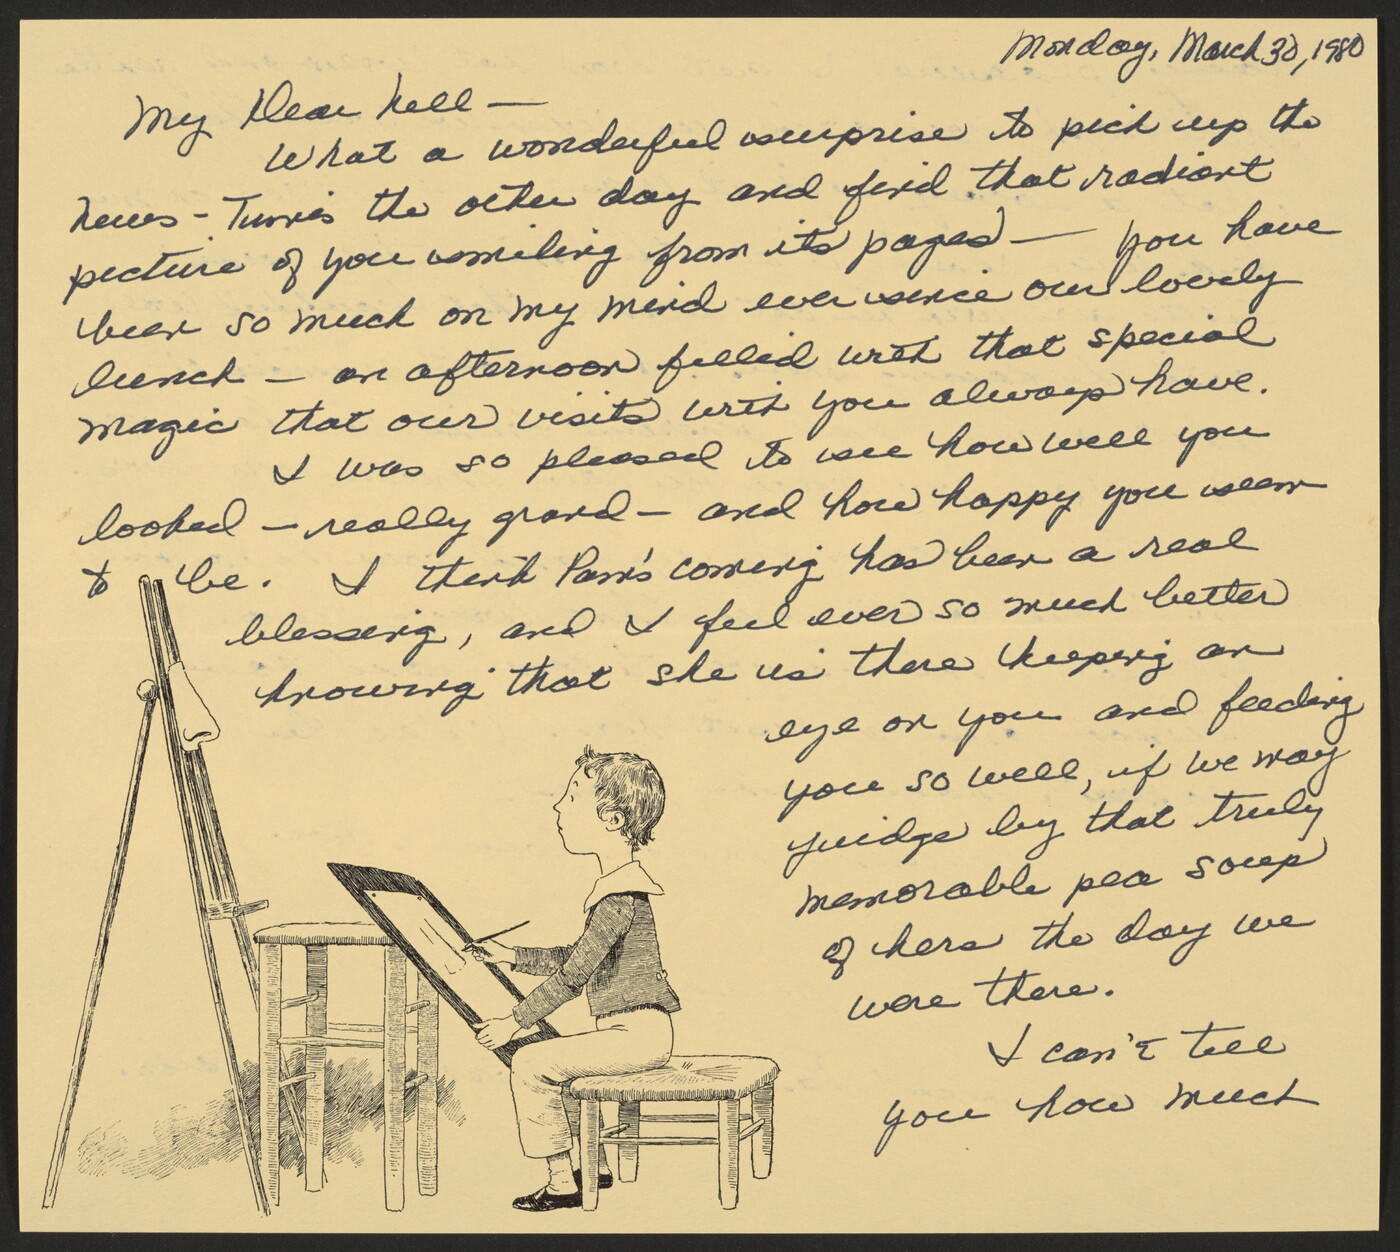 Monday, March 30, 1980
My Dear Nell —
What a wonderful surprise to pick up the
News-Times the other day and find that radiant
picture of you smiling from its pages — You have
been so much on my mind ever since our lovely
lunch — an afternoon filled with that special
magic that our visits with you always have.
I was so pleased to see how well you
looked — really grand — and how happy you seem
to be. I think Pam's coming has been a real
blessing, and I feel ever so much better
knowing that she is there keeping an
eye on you and feeding
you so well, if we may
judge by that truly
memorable pea soup
of hers the day we
were there.
I can't tell
you how much